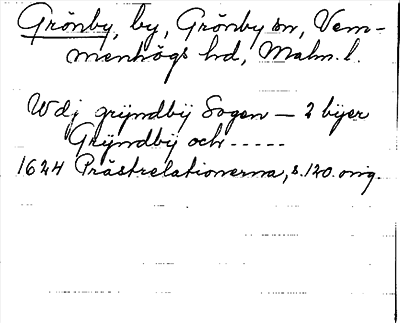 Grönby, by, Grönby sn, Vem-
menhögs hd, Malm. l.
Wdj grÿndbÿ Sogen - 2 bÿer
Grÿndbÿ och -----
1624 Prästrelationerna, s. 120. orig.